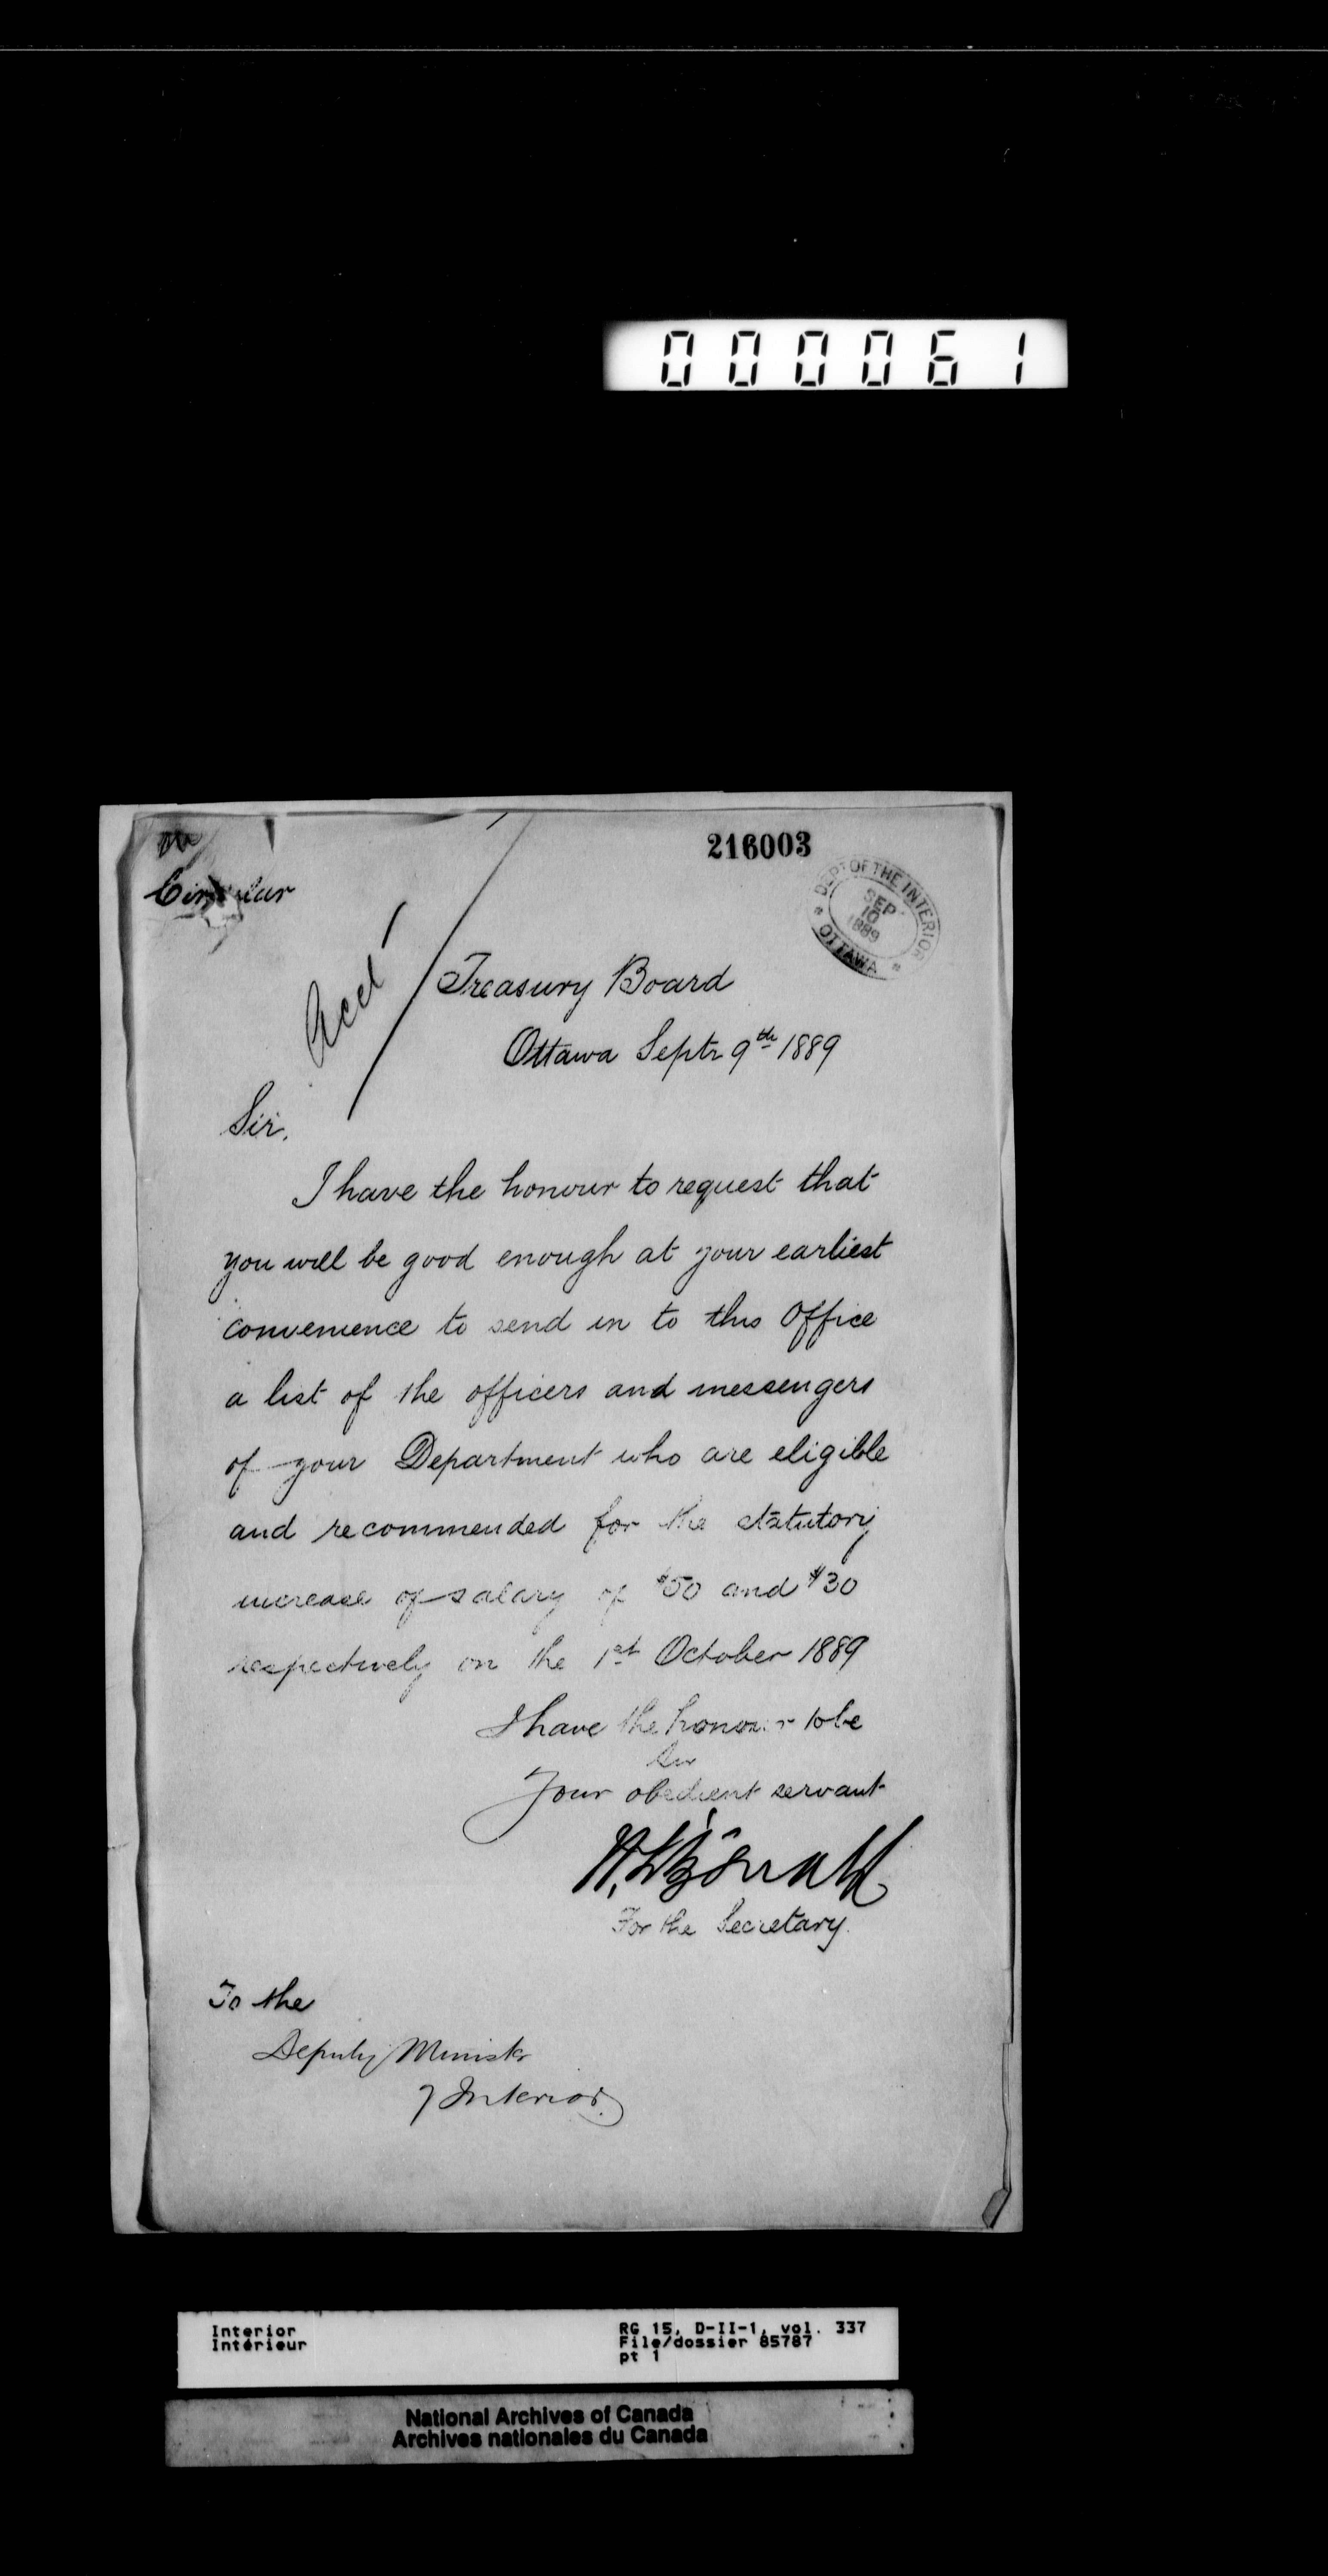 000061
216003
Circular
DEPT OF THE INTERIOR
SEP
10
1889
OTTAWA
Acct
Treasury Board
Ottawa Septr 9th 1889
Sir,
I have the honour to request that
you will be good enough at your earliest
convenience to send in to this Office
a list of the officers and messengers
of your Department who are eligible
and recommended for the statutory
increase of salary of $50 and $30
respectively on the 1st October 1889
I have the honour to be
Sir
Your obedient servant
For the Secretary.
To the
Deputy Minister
of Interior.
Interior
Intérieur
RG 15, D-II-1, vol. 337
File/dossier 85787
pt 1
National Archives of Canada
Archives nationales du Canada